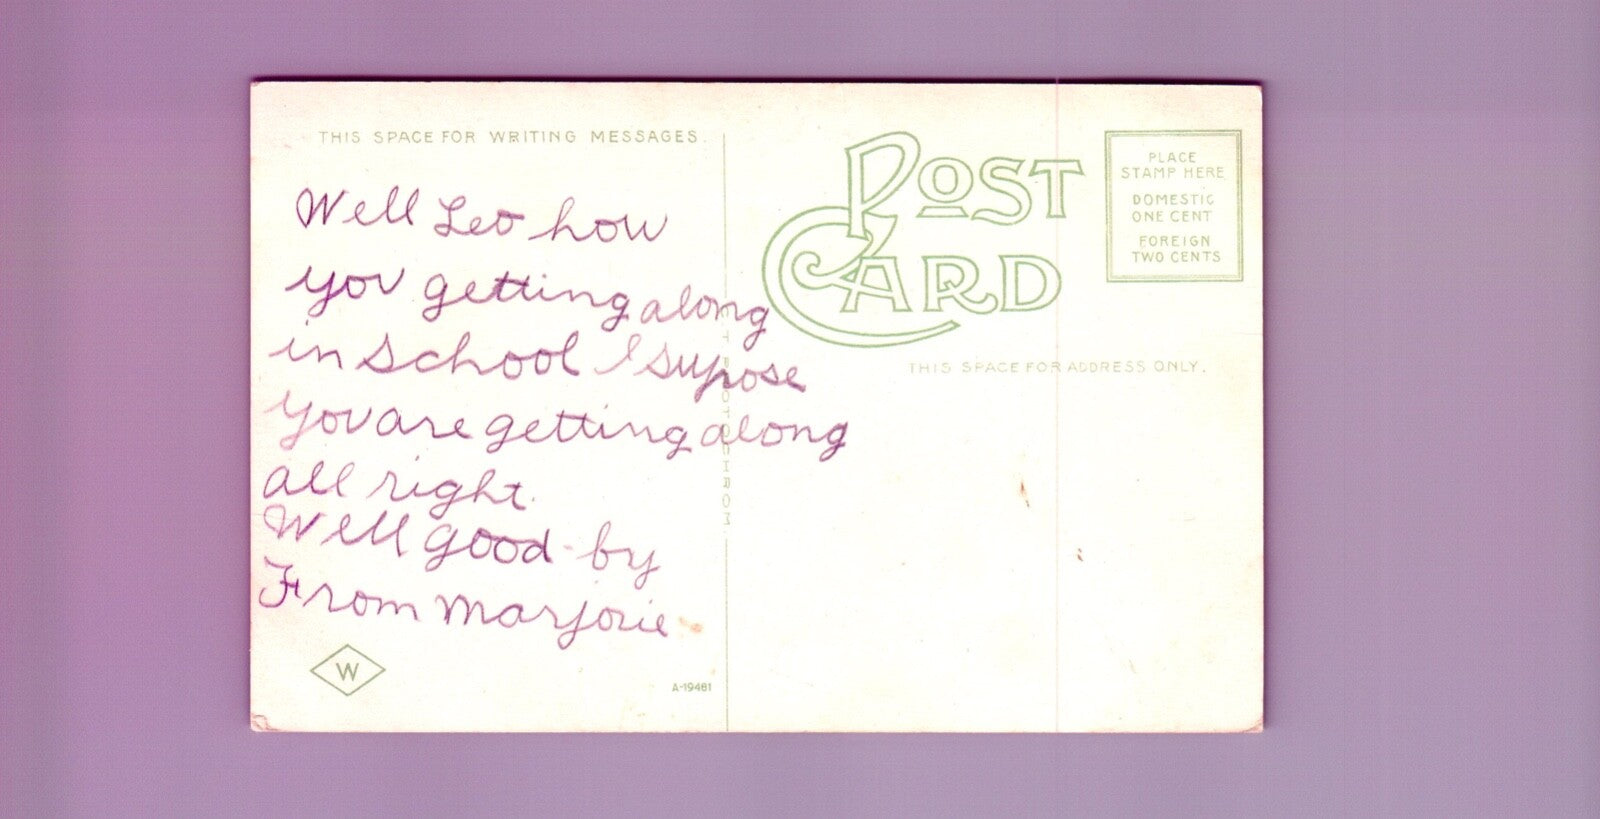 THIS SPACE FOR WRITING MESSAGES.
Well Leo how
you getting along
in school I supose
you are getting along
all right.
Well good-by
From Marjorie
W
A-19461
POST
CARD
PLACE
STAMP HERE
DOMESTIC
ONE CENT
FOREIGN
TWO CENTS
THIS SPACE FOR ADDRESS ONLY.